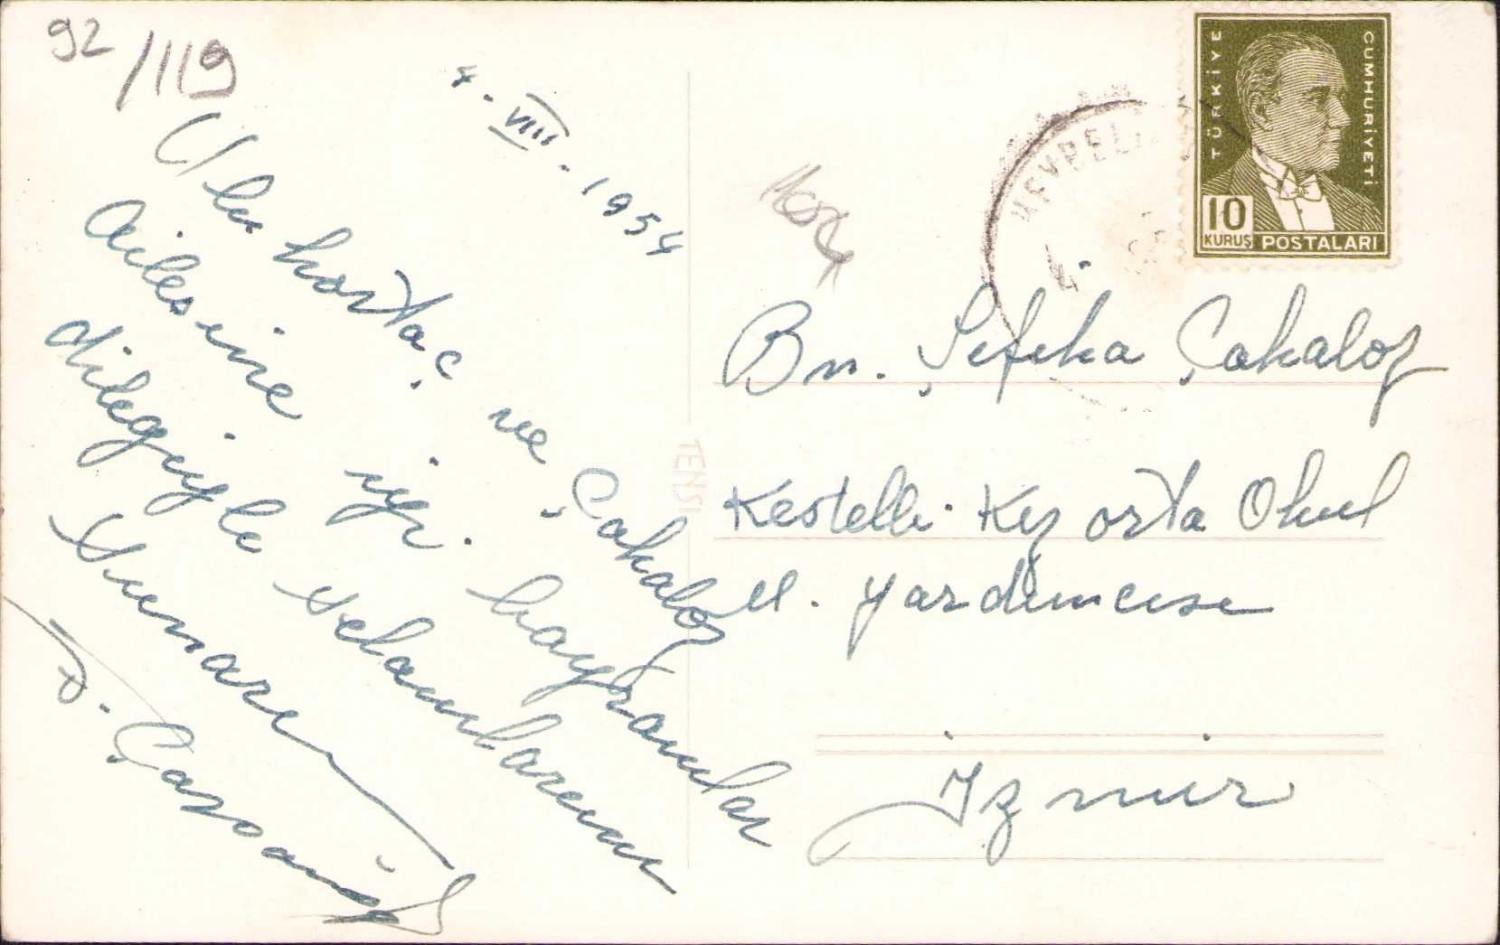 92/119
4-VIII-1954
Ulu hortaç ve Çakaloz
Ailesine iyi bayramlar
dileğiyle selamlarımı
sunarım
Ö. Çaroaı
TÜRKİYE
CUMHURİYETİ
10
KURUŞ POSTALARI
Bn. Şefika Çakaloz
Kestelli Kız orta Okul
M. Yardımcısı
İzmir
TENSI